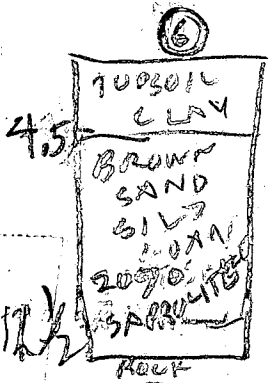 6
TOPSOIL
CLAY
4.5
BROWN
SAND
SILT
LOAM
20%
SAPROLITE
12 1/2
ROCK